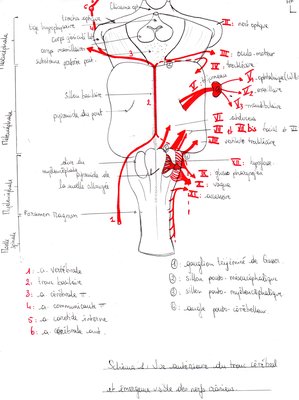 Chiasma optique
tractus optique
tige hypophysaire
corps genouillé lat.
corps mamillaire
substance perforée post.
sillon basilaire
pyramide du pont
olive du
myélencéphale
pyramide de
la moelle allongée
Foramen Magnum
Mésencéphale
Métencéphale
Myélencéphale
Moelle
spinale
II : nerf optique
III : oculo-moteur
IV : trochléaire
V : trijumeau
V1 : ophtalmique
V2 : maxillaire
V3 : mandibulaire
VI : abducens
VII et VII bis : facial et
VIII : vestibulo cochléaire
XII : hypoglosse
IX : glosso pharyngien
X : vague
XI : accessoire
1
2
3
1 : a. vertébrale
2 : tronc basilaire
3 : a. cérébrale
4 : a communicante
5 : a carotide interne
6 : a cérébrale ant.
① : ganglion trigéminé de Gasser.
② : sillon ponto-mésencéphalique
③ : sillon ponto-myélencéphalique
④ : angle ponto-cérébelleux.
Schéma 1 : Vue antérieure du tronc cérébral
et émergence visible des nerfs crâniens.